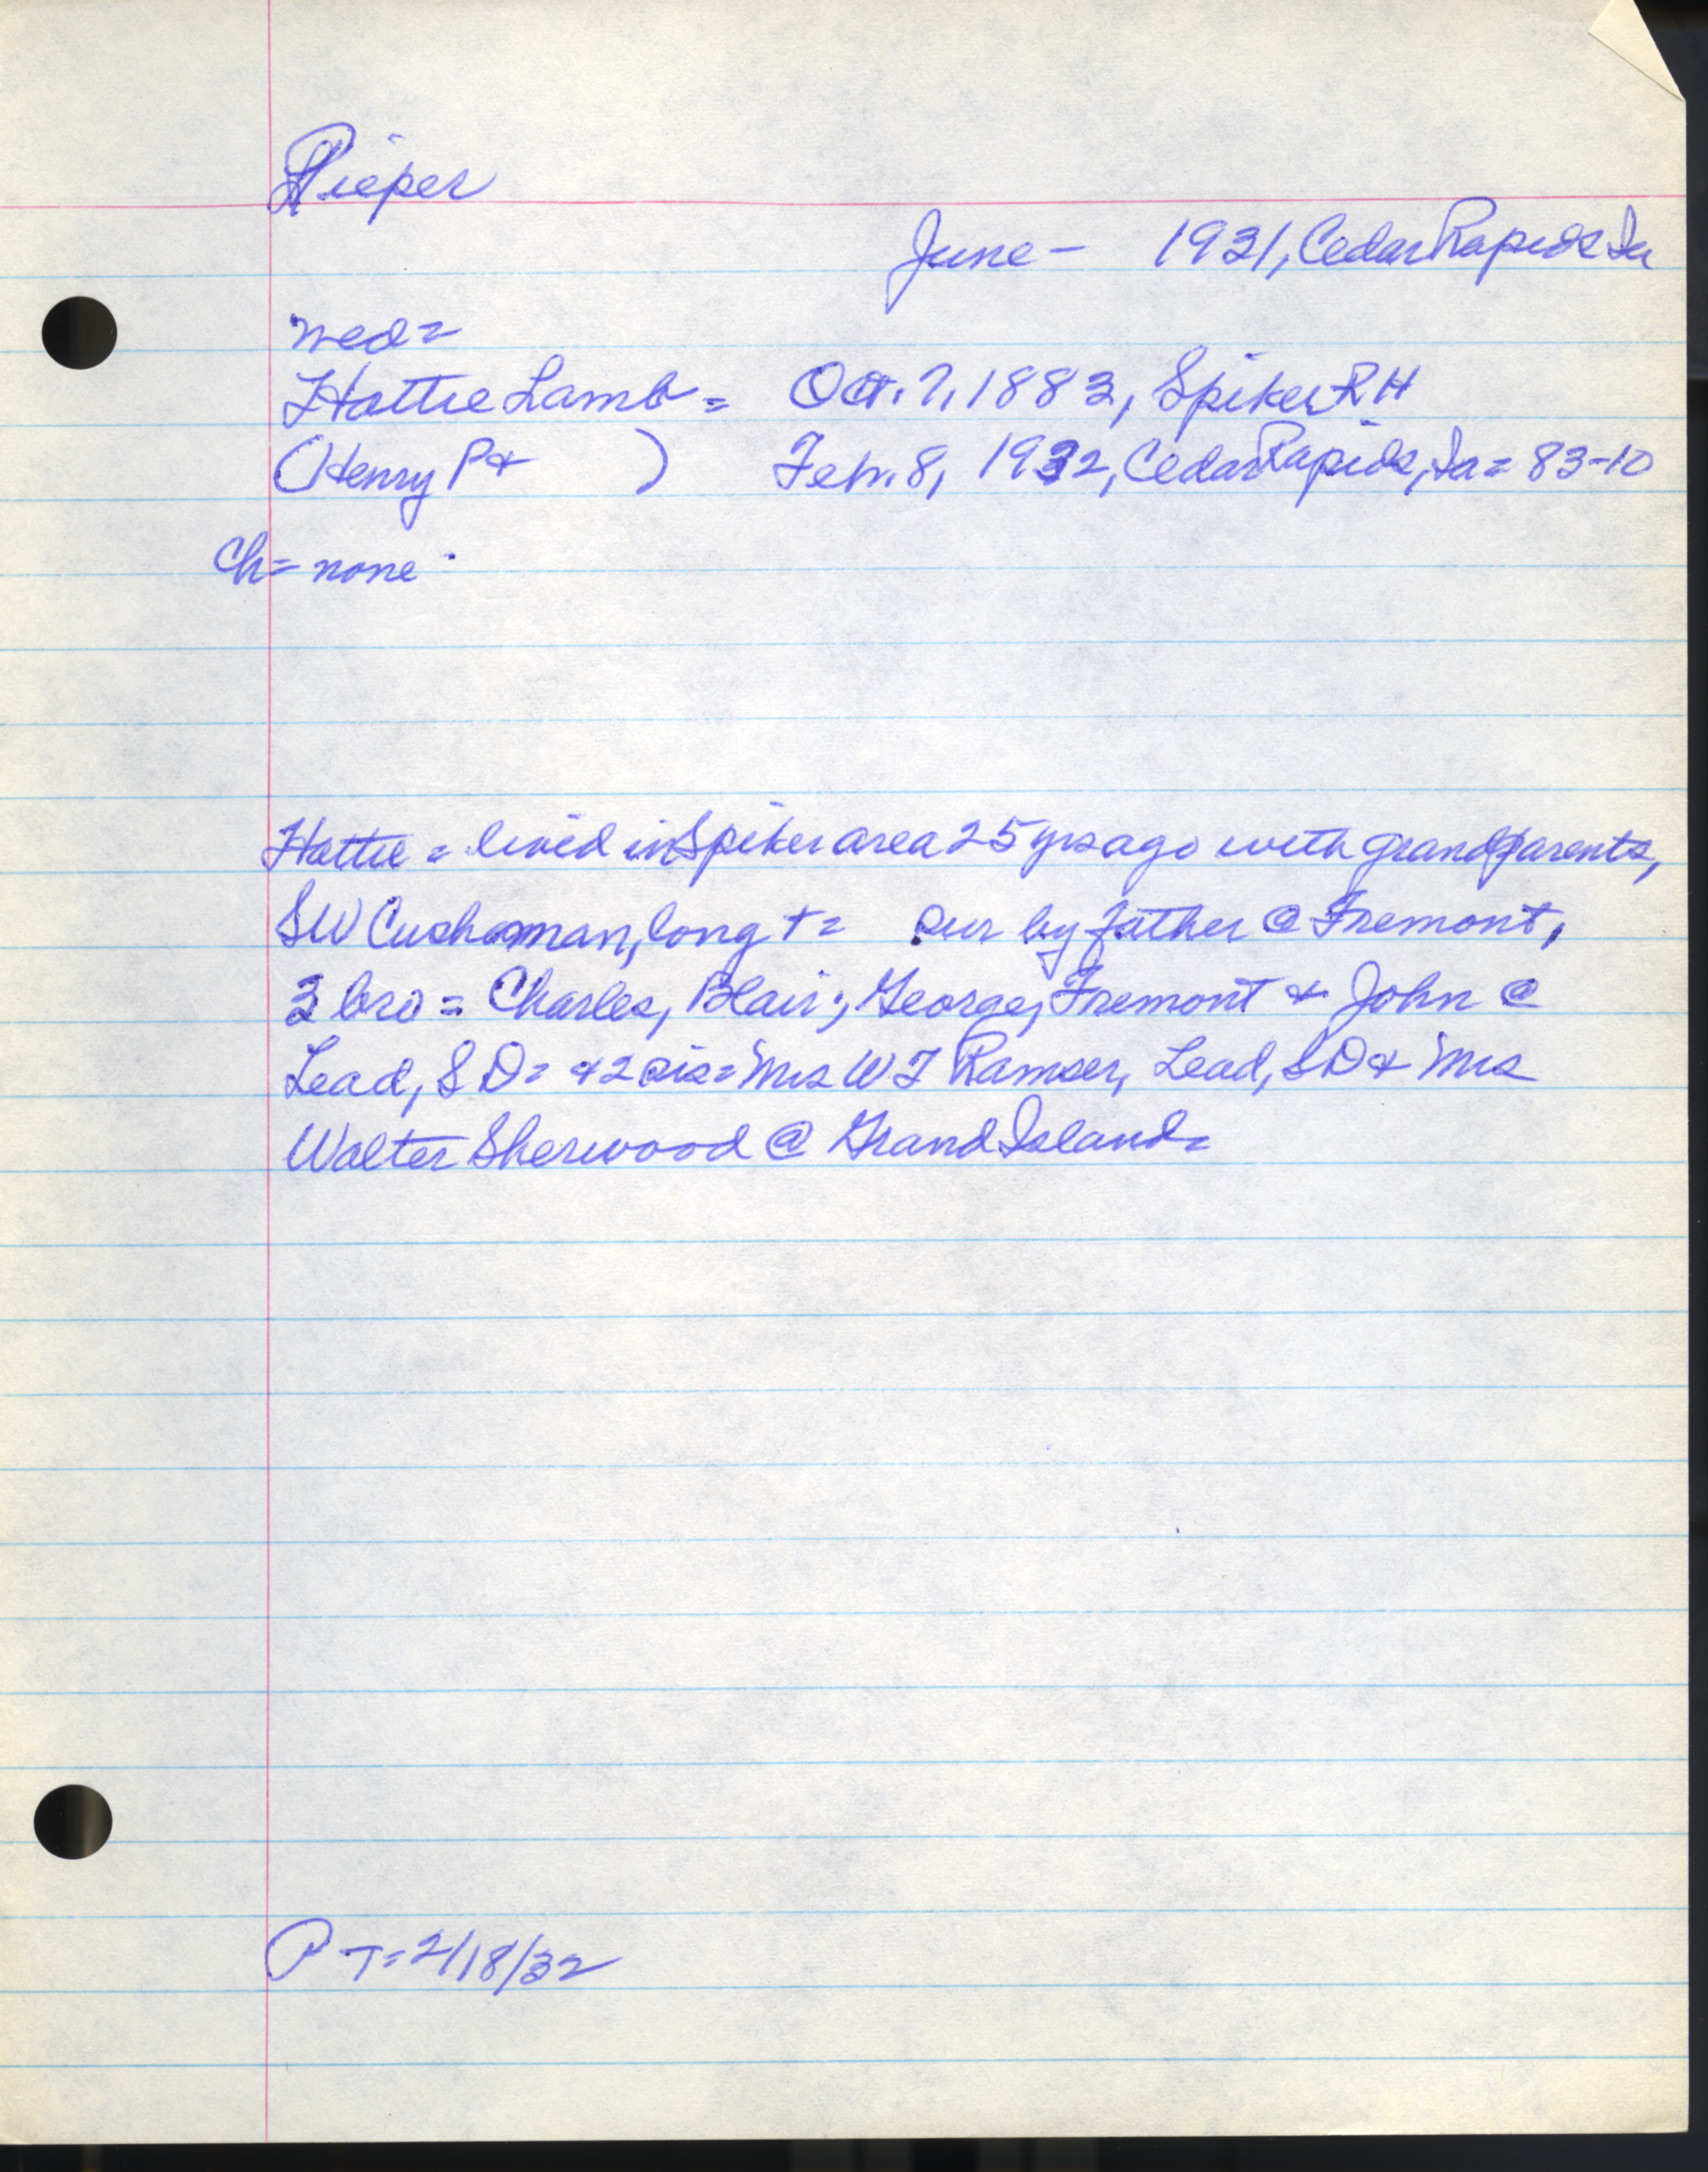 Pieper
June - 1931, Cedar Rapids Ia
wed=
Hattie Lamb = Oct. 7, 1883, Spiker R H
(Henry P & ) Feb. 8, 1932, Cedar Rapids, Ia = 83-10
Ch= none
Hattie = lived in Spiker area 25 yrs ago with grandparents,
SW Cushman, long t= sur by father @ Fremont,
3 bro = Charles, Blair; George, Fremont & John @
Lead, SD= & 2 sis= Mrs W F Ramser, Lead, SD & Mrs
Walter Sherwood @ Grand Island=
P T= 2/18/32